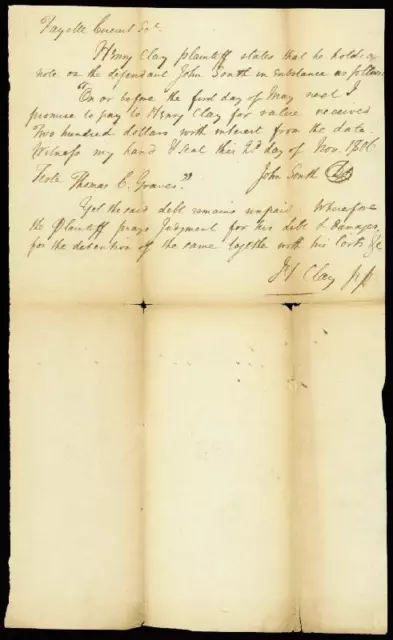 Fayette Circuit Sct.
Henry Clay plaintiff states that he holds a
note on the defendant John South in substance as follows
"On or before the first day of May next I
promise to pay to Henry Clay for value received
Two hundred dollars with interest from the date.
Witness my hand & seal this 2d day of Nov. 1806
Teste Thomas C. Graves." John South
Yet the said debt remains unpaid. Wherefore
the Plaintiff prays Judgment for his debt & damages
for the detention of the same together with his Costs &c
Clay